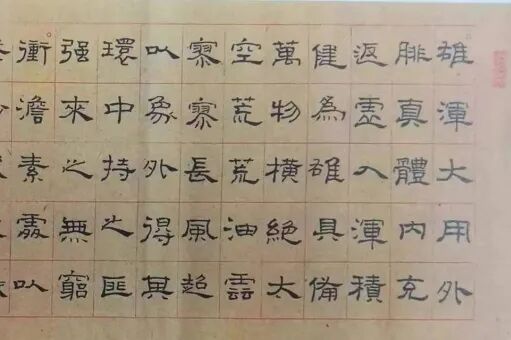 雄渾大用外
腓真體內充
返虛入渾積
健為雄具備
萬物橫絕太
空荒荒油雲
寥寥長風超
以象外得其
環中持之匪
强來之無窮
衝澹素處以